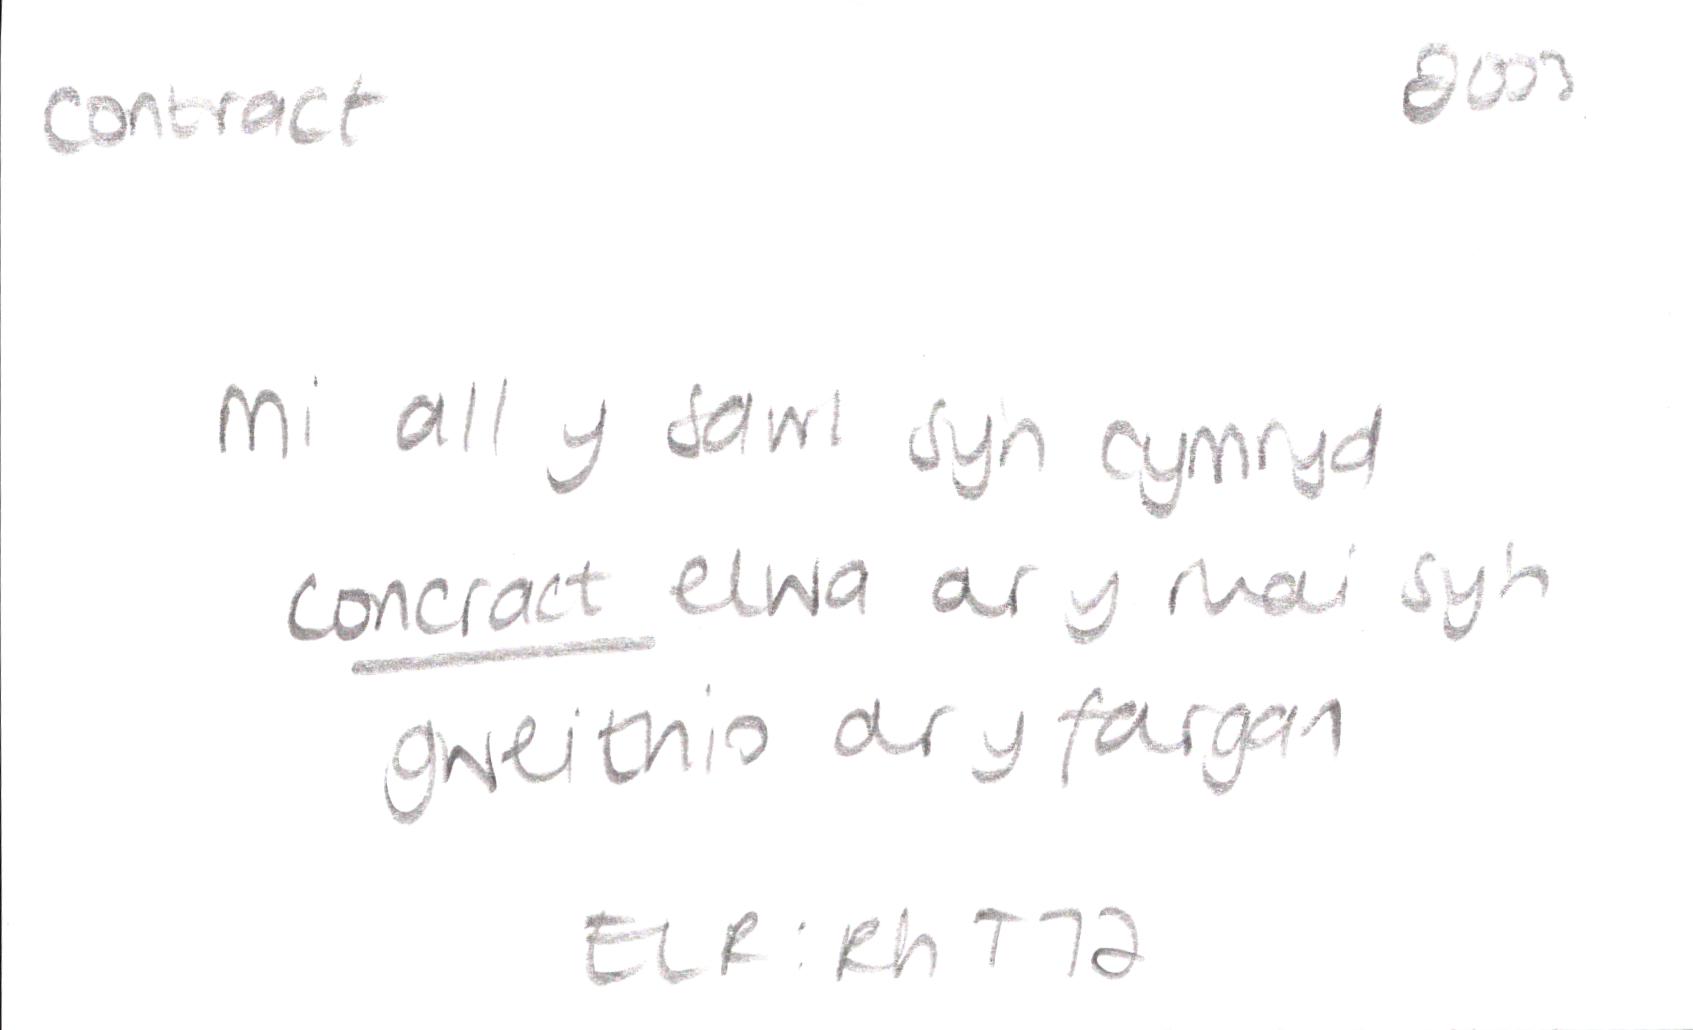 contract 2003
Mi all y sawl syn cymryd
concract elwa ar y rhai syn
gweithio ar y fargan
ELR: Rh T 72